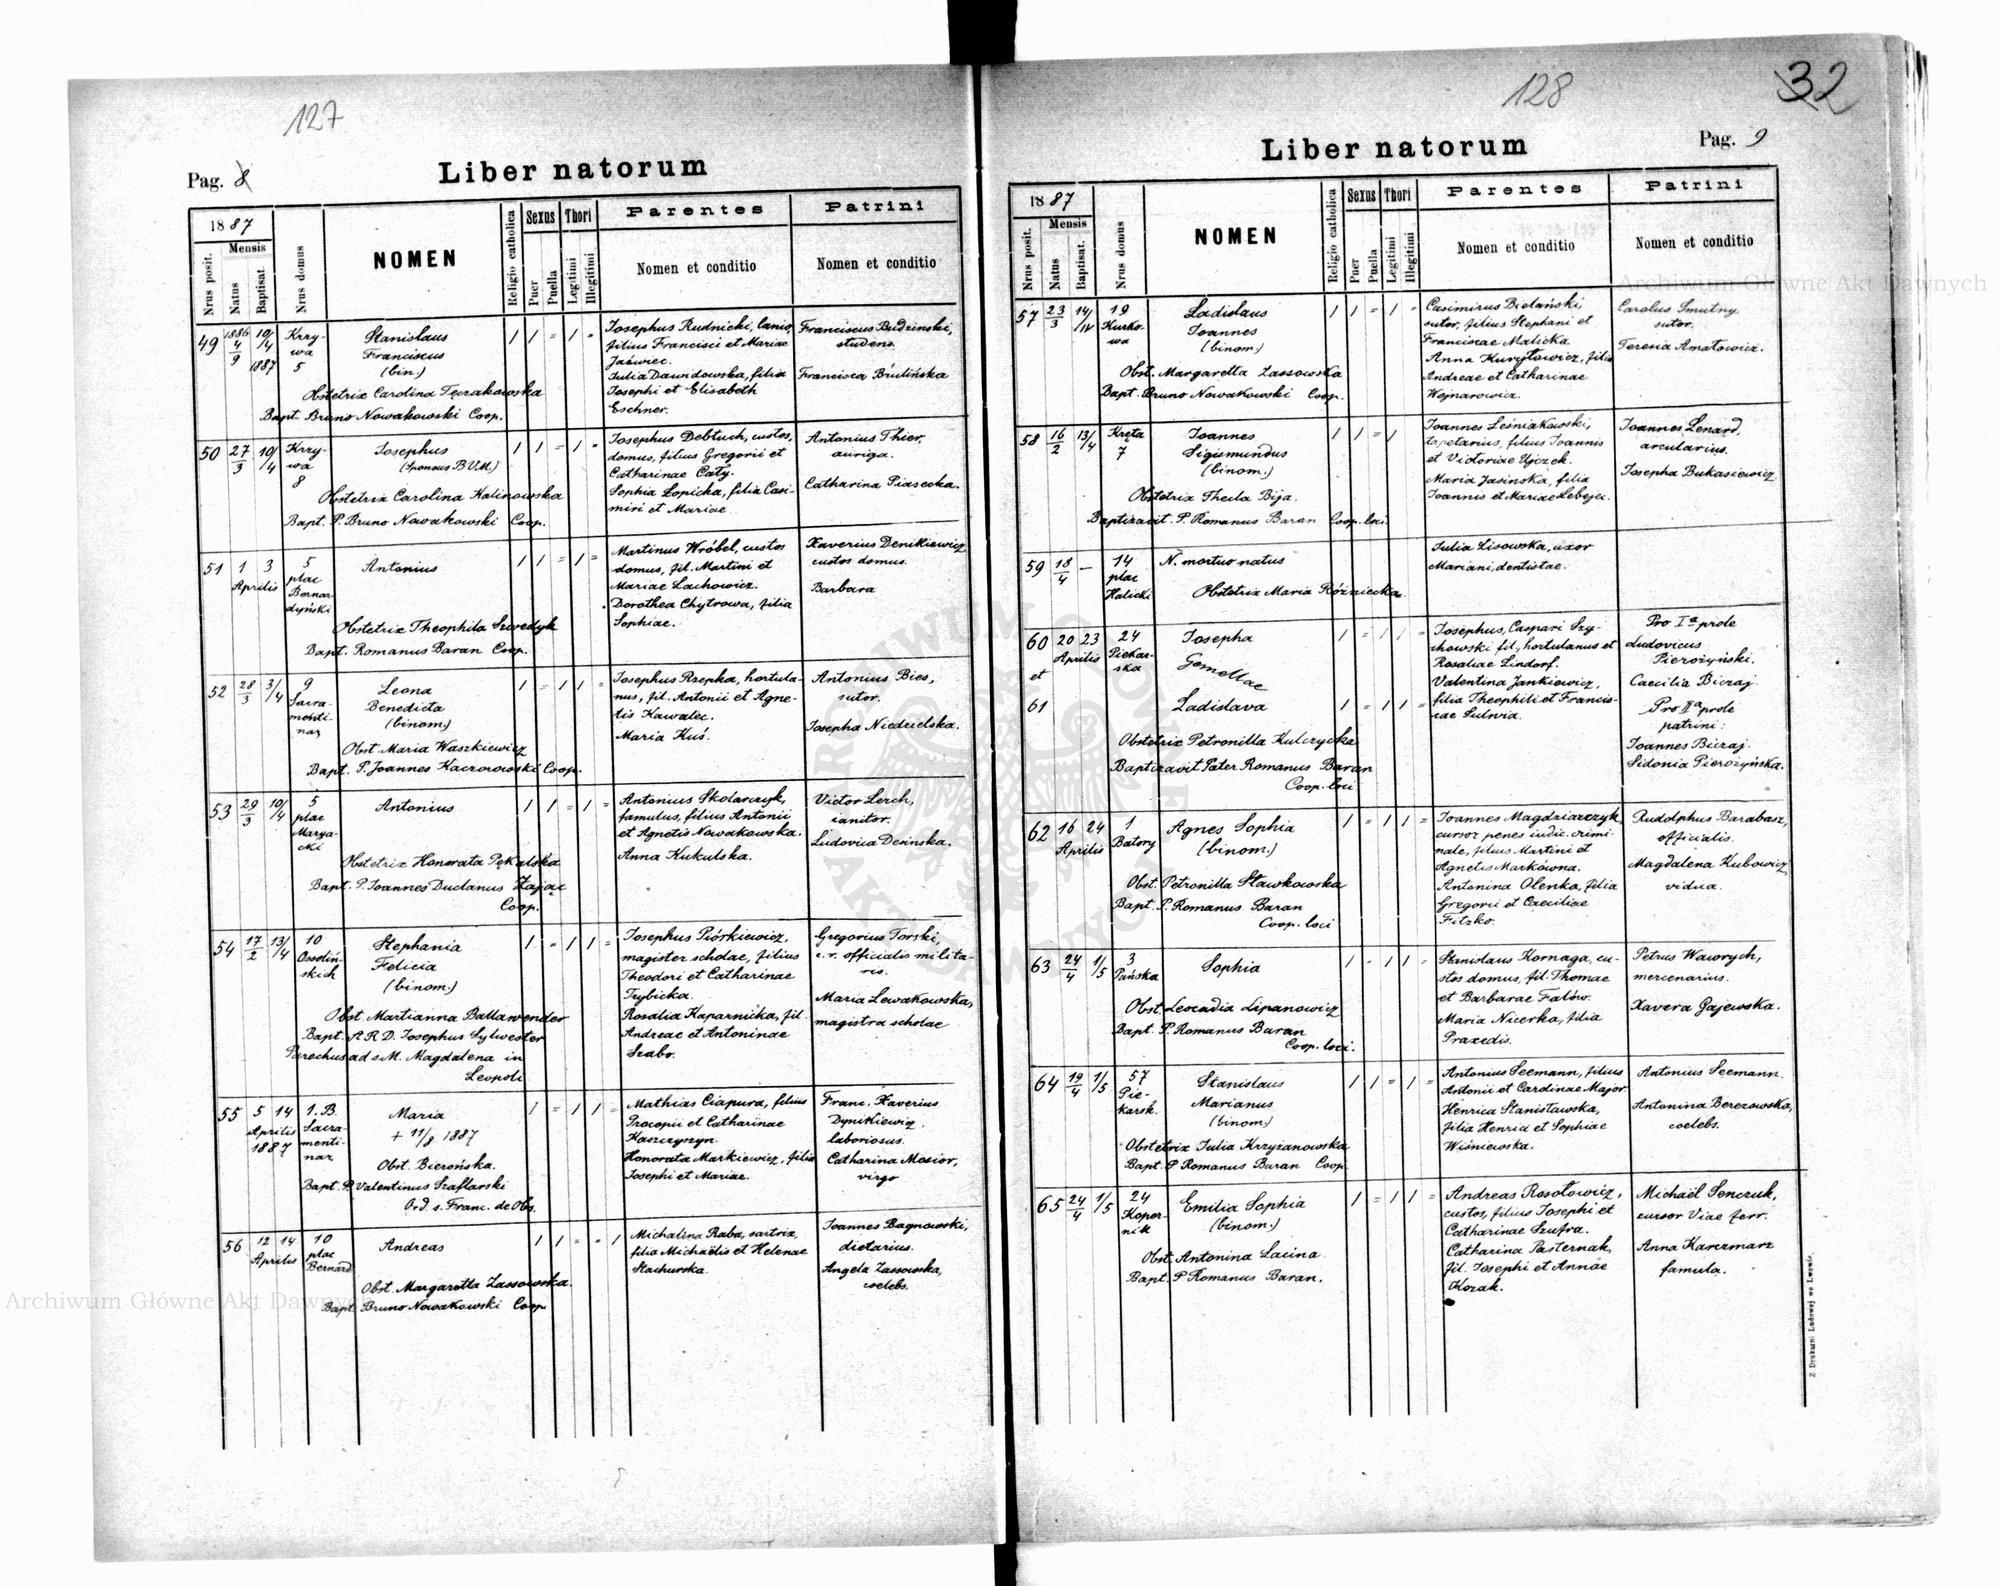 127
Pag. 8
Liber natorum
1887
Mensis
Nrus posit.
Natus
Baptisat.
Nrus domus
NOMEN
Religio catholica
Sexus
Puer
Puella
Thori
Legitimi
Illegitimi
Parentes
Nomen et conditio
Patrini
Nomen et conditio
49
1886 4/9
10/4 1887
Krzy-
wa
5
Stanislaus
Franciscus
(bin.)
Obstetrix Carolina Tęczakowska
Bapt. Bruno Nowakowski Coop.
Josephus Rudnicki, lanio,
filius Francisci et Mariae
Jaświec.
Julia Dawidowska, filia
Josephi et Elisabeth
Eschner.
Franciscus Budzinski,
studens.
Francisca Brulińska
50
27/3
10/4
Krzy-
wa
8
Josephus
(Sponsus B.V.M.)
Obstetrix Carolina Kalinowska
Bapt. P. Bruno Nowakowski Coop.
Josephus Debtuch, custos,
domus, filius Gregorii et
Catharinae Cały.
Sophia Łopicka, filia Casi-
miri et Mariae
Antonius Thier,
auriga.
Catharina Piasecka.
51
1 3
Aprilis
5
plac
Bernar-
dyński
Antonius
Obstetrix Theophila Szwedyk
Bapt. Romanus Baran Coop.
Martinus Wróbel, custos
domus, fil. Martini et
Mariae Lachowicz.
Dorothea Chytrowa, filia
Sophiae.
Xaverius Denikiewicz
custos domus.
Barbara
52
28/3
3/4
9
Sacra-
menti-
naz
Leona
Benedicta
(binom.)
Obst. Maria Waszkiewicz
Bapt. P. Joannes Kaczorowski Coop.
Josephus Rzepka, hortula-
nus, fil. Antonii et Agne-
tis Kawalec.
Maria Kuś.
Antonius Bies,
sutor.
Josepha Niedzielska.
53
29/3
10/4
5
plac
Marya-
cki
Antonius
Obstetrix Honorata Pękalska
Bapt. P. Joannes Duclanus Zając
Coop.
Antonius Skolarczyk,
famulus, filius Antonii
et Agnetis Nowakowska.
Anna Kukulska.
Victor Lerch,
ianitor.
Ludovica Desinska.
54
17/2
13/4
10
Ossoliń-
skich
Stephania
Felicia
(binom.)
Obst. Martianna Ballawender
Bapt. A R. D. Josephus Sylwester
Parochus ad s. M. Magdalena in
Leopoli
Josephus Piórkiewicz,
magister scholae, filius
Theodori et Catharinae
Trybicka.
Rosalia Kaparnicka, fil.
Andreae et Antoninae
Szabo.
Gregorius Torski,
c. r. officialis milita-
ris.
Maria Lewakowska,
magistra scholae
55
5 14
Aprilis
1887
1. B.
Sacra-
menti-
naz
Maria
+ 11/8 1887
Obst. Bierońska.
Bapt. P. Valentinus Szaflarski
Ord. s. Franc. de Obs.
Mathias Ciapura, filius
Procopii et Catharinae
Kaszczyszyn.
Honorata Markiewicz, filia
Josephi et Mariae.
Franc. Xaverius
Dynikiewicz,
laboriosus.
Catharina Mosior,
virgo
56
12 14
Aprilis
10
plac
Bernard
Andreas
Obst. Margaretta Zassowska.
Bapt. Bruno Nowakowski Coop.
Michalina Raba, sartrix,
filia Michaëlis et Helenae
Stachurska.
Joannes Bagnowski,
dietarius.
Angela Zassowska,
coelebs.
128
32
Liber natorum
Pag. 9
1887
Mensis
Nrus posit.
Natus
Baptisat.
Nrus domus
NOMEN
Religio catholica
Sexus
Puer
Puella
Thori
Legitimi
Illegitimi
Parentes
Nomen et conditio
Patrini
Nomen et conditio
57
23/3
14/IV
19
Kurko-
wa
Ladislaus
Joannes
(binom.)
Obst. Margaretta Zassowska
Bapt. Bruno Nowakowski Coop.
Casimirus Bielański,
sutor, filius Stephani et
Franciscae Malicka
Anna Kuryłowicz, filia
Andreae et Catharinae
Wojnarowicz.
Carolus Smutny
sutor.
Teresia Amatowicz.
58
16/2
13/4
Kręta
7
Joannes
Sigismundus
(binom.)
Obstetrix Thecla Bija.
Baptizavit P. Romanus Baran Coop. loci.
Joannes Leśniakowski,
tapetarius, filius Joannis
et Victoriae Ujczek.
Maria Jasinska, filia
Joannis et Mariae Łebejec.
Joannes Lenard,
arcularius.
Josepha Bukasiewicz
59
18/4
—
14
plac
Halicki
N. mortuo natus
Obstetrix Maria Różniecka.
Julia Lisowska, uxor
Mariani, dentistae.
60
et
61
20 23
Aprilis
24
Piekar-
ska
Josepha
Gemellae
Ladislava
Obstetrix Petronilla Kulczycka
Baptizavit Pater Romanus Baran
Coop. loci
Josephus, Caspari Szy-
chowski fil., hortulanus et
Rosaliae Lindorf.
Valentina Jankiewicz,
filia Theophili et Francis-
cae Sulwia.
Pro Iª prole
Ludovicus
Pierożyński.
Caecilia Biczaj.
Pro IIª prole
patrini:
Joannes Biczaj.
Sidonia Pierożyńska.
62
16 24
Aprilis
1
Batory
Agnes Sophia
(binom.)
Obst. Petronilla Sławkowska
Bapt. P. Romanus Baran
Coop. loci
Joannes Magdziarczyk,
cursor penes iudic. crimi-
nale, filius Martini et
Agnetis Markówna.
Antonina Olenka, filia
Gregorii et Caeciliae
Fitzko.
Rudolphus Barabasz,
officialis.
Magdalena Kubowicz,
vidua.
63
24/4
1/5
3
Pańska
Sophia
Obst. Leocadia Lipanowicz
Bapt. P. Romanus Baran
Coop. loci.
Stanislaus Kornaga, cu-
stos domus, fil. Thomae
et Barbarae Fałów.
Maria Nicerka, filia
Praxedis.
Petrus Wawrych,
mercenarius.
Xavera Gajewska.
64
19/4
1/5
57
Pie-
karsk.
Stanislaus
Marianus
(binom)
Obstetrix Julia Krzyżanowska
Bapt. P. Romanus Baran Coop.
Antonius Seemann, filius
Antonii et Carolinae Major
Henrica Stanisławska,
filia Henrici et Sophiae
Wiśniewska.
Antonius Seemann.
Antonina Berezowska,
coelebs.
65
24/4
1/5
24
Koper-
nik
Emilia Sophia
(binom.)
Obst. Antonina Lacina.
Bapt. P. Romanus Baran.
Andreas Rosołowicz,
custos, filius Josephi et
Catharinae Szufra.
Catharina Pasternak,
fil. Josephi et Annae
Kozak.
Michaël Senczuk,
cursor Viae ferr.
Anna Karczmarz
famula.
Z Drukarni Ludowej we Lwowie.
Archiwum Główne Akt Dawnych
Archiwum Główne Akt Dawnych
ARCHIWUM GŁÓWNE AKT DAWNYCH